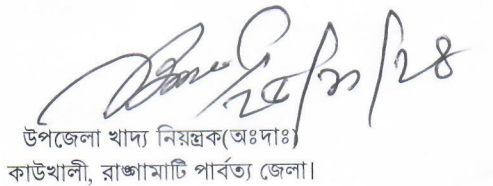 উপজেলা খাদ্য নিয়ন্ত্রক(অঃদাঃ)
কাউখালী, রাঙ্গামাটি পার্বত্য জেলা।